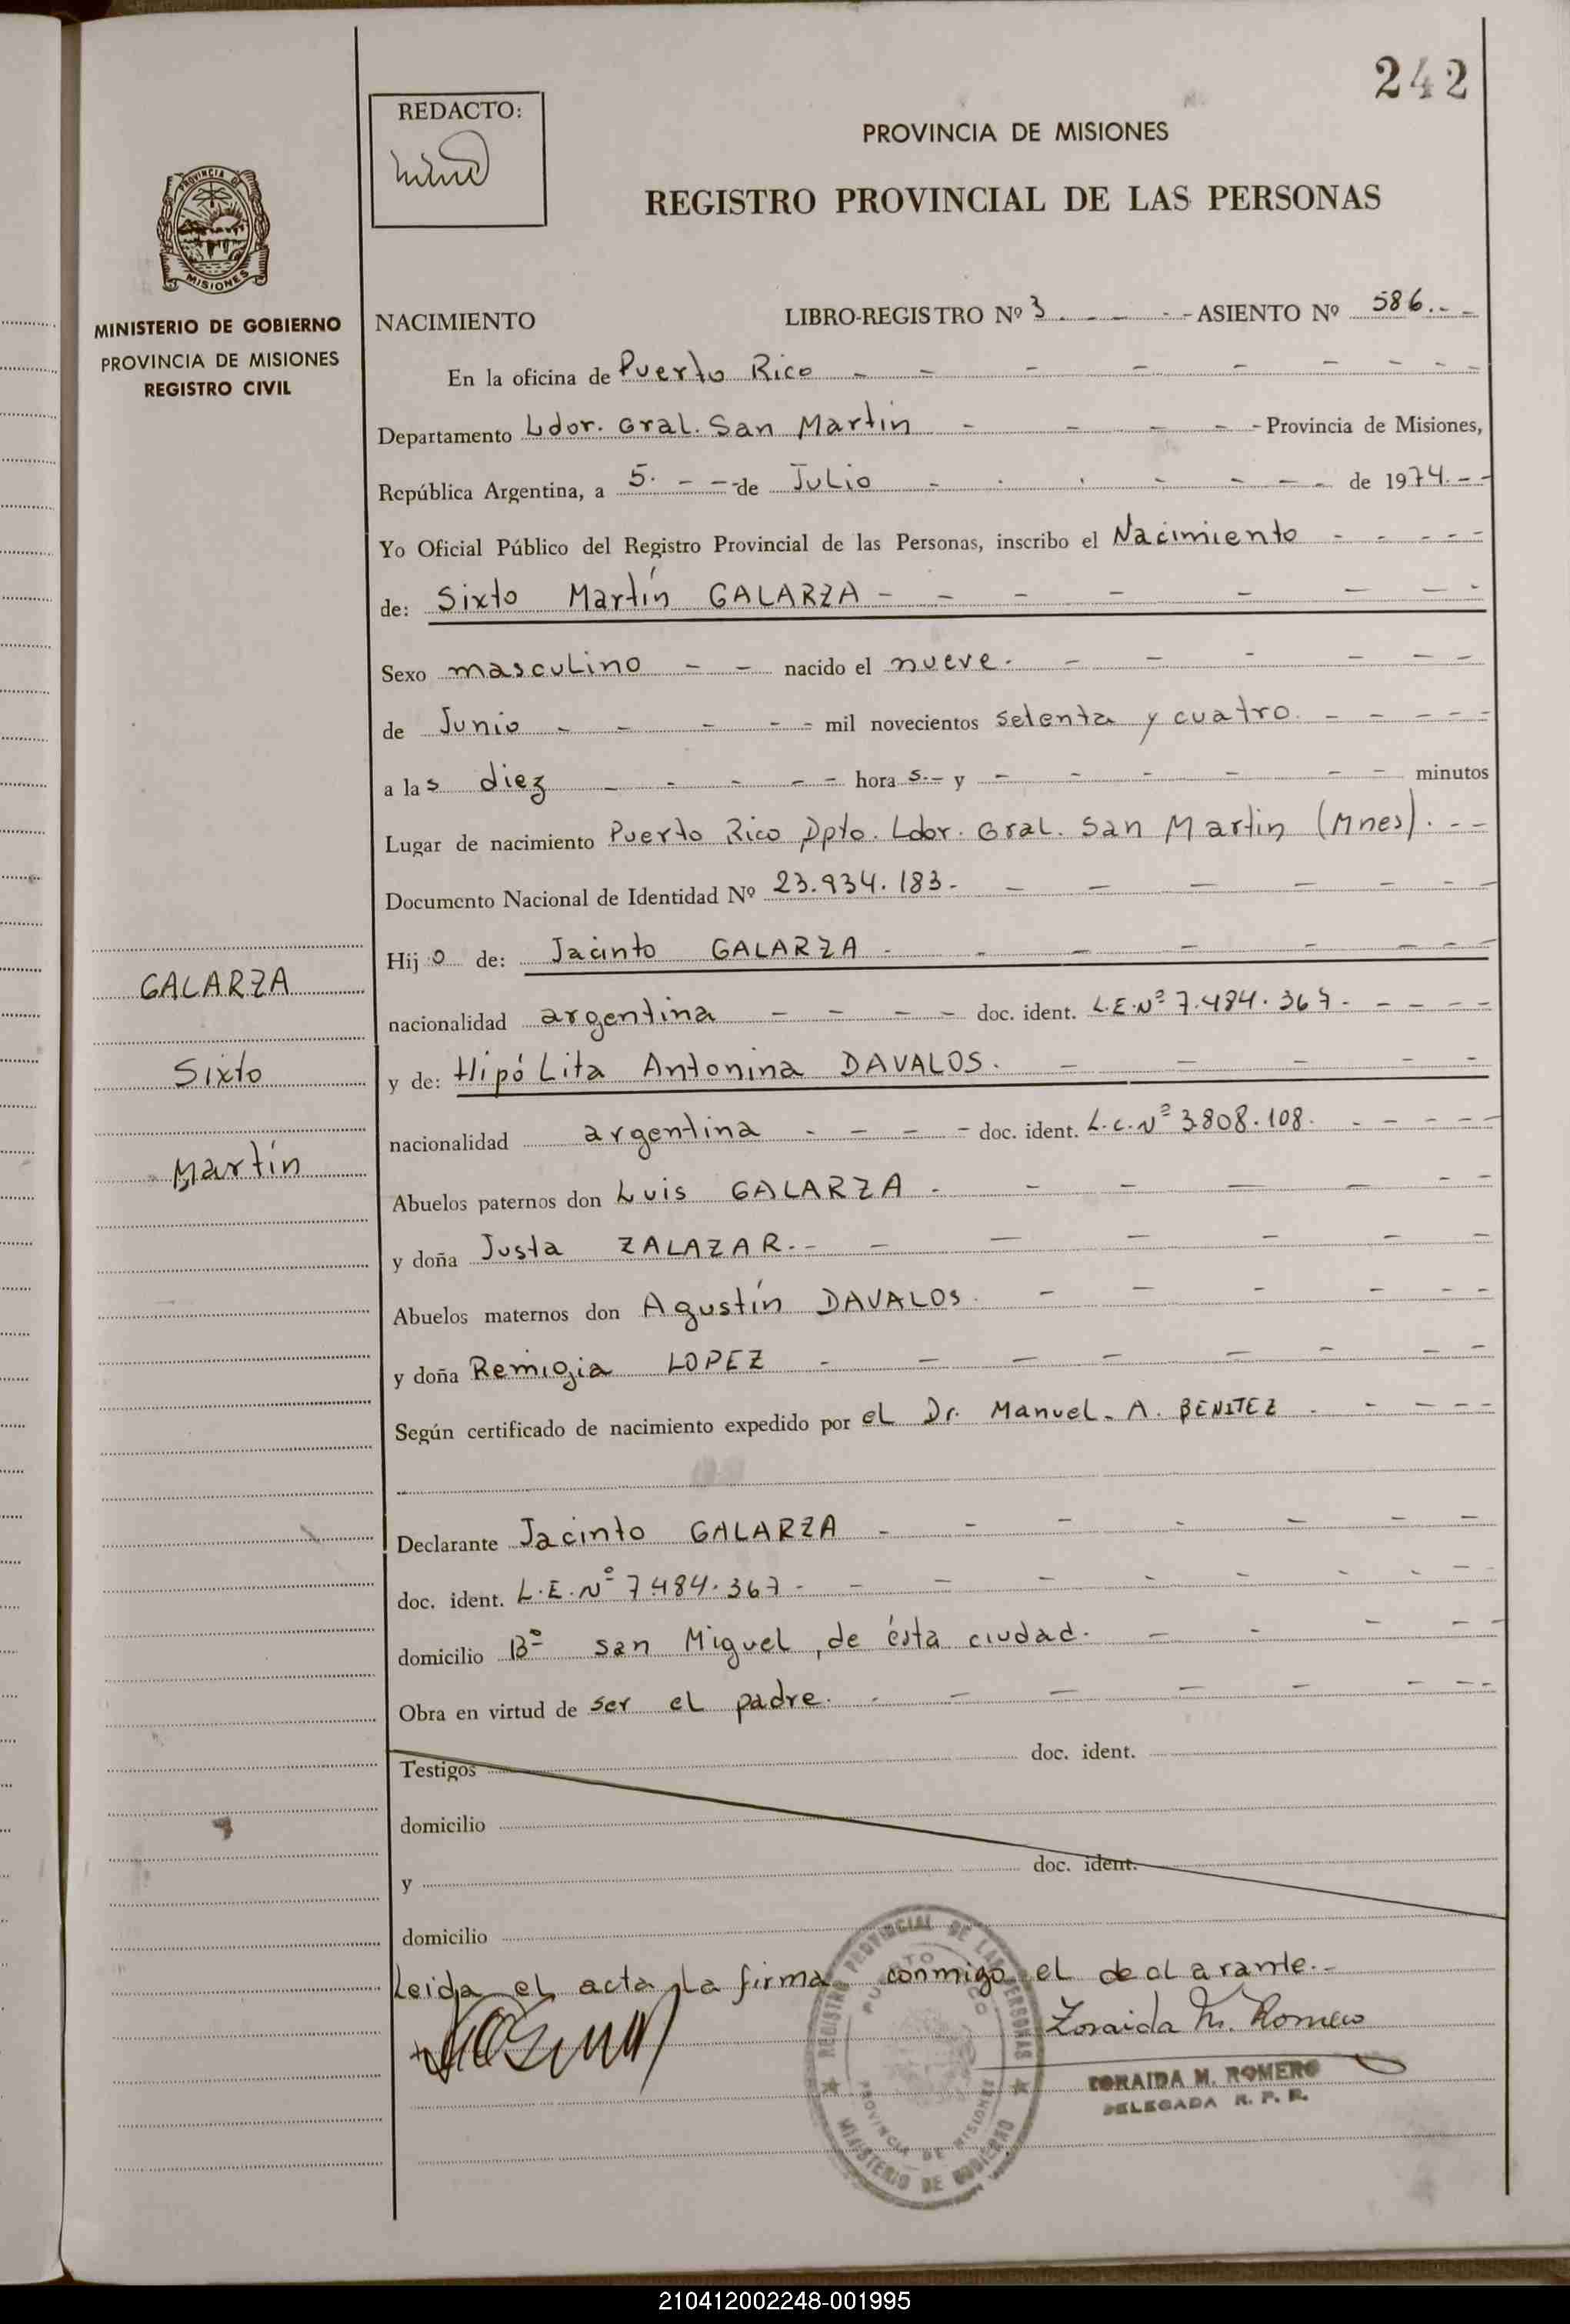 242
REDACTO:
PROVINCIA DE MISIONES
REGISTRO PROVINCIAL DE LAS PERSONAS
PROVINCIA D MISIONES
MINISTERIO DE GOBIERNO
PROVINCIA DE MISIONES
REGISTRO CIVIL
NACIMIENTO LIBRO-REGISTRO Nº 3 - - - - ASIENTO Nº 586. - -
En la oficina de Puerto Rico - - - - - - - -
Departamento Ldor. Gral. San Martín - - - - - Provincia de Misiones,
República Argentina, a 5. - - - de Julio - - - - - - - de 1974. - -
Yo Oficial Público del Registro Provincial de las Personas, inscribo el Nacimiento - - - - -
de: Sixto Martín GALARZA - - - - - - - -
Sexo masculino - - nacido el nueve. - - - - - -
de Junio - - - - - mil novecientos setenta y cuatro. - - - - -
a las diez - - - - - hora s. - y - - - - - - minutos
Lugar de nacimiento Puerto Rico Dpto. Ldor. Gral. San Martin (Mnes). - -
Documento Nacional de Identidad Nº 23.934.183. - - - - - - -
Hijo de: Jacinto GALARZA - - - - - - -
nacionalidad argentina - - - - doc. ident. L.E.Nº 7.484.367. - - - -
y de: Hipólita Antonina DAVALOS. - - - - -
nacionalidad argentina - - - - - doc. ident. L.C.Nº 3.808.108. - - - - -
Abuelos paternos don Luis GALARZA - - - - - - -
y doña Justa ZALAZAR. - - - - - - -
Abuelos maternos don Agustín DAVALOS. - - - - - -
y doña Remigia LOPEZ - - - - - - - -
Según certificado de nacimiento expedido por el Dr. Manuel. A. BENITEZ - - - - -
Declarante Jacinto GALARZA - - - - - - -
doc. ident. L.E.Nº 7.484.367 - - - - - - - -
domicilio Bº san Miguel, de ésta ciudad. - - - - -
Obra en virtud de ser el padre. - - - - - - - -
Testigos doc. ident.
domicilio
y doc. ident.
domicilio
Leida el acta La firma conmigo el declarante. -
Zoraida M. Romero
ZORAIDA M. ROMERO
DELEGADA R. P. P.
REGISTRO PROVINCIAL DE LAS PERSONAS
PUERTO RICO
PROVINCIA DE MISIONES
MINISTERIO DE GOBIERNO
GALARZA
Sixto
Martín
210412002248-001995